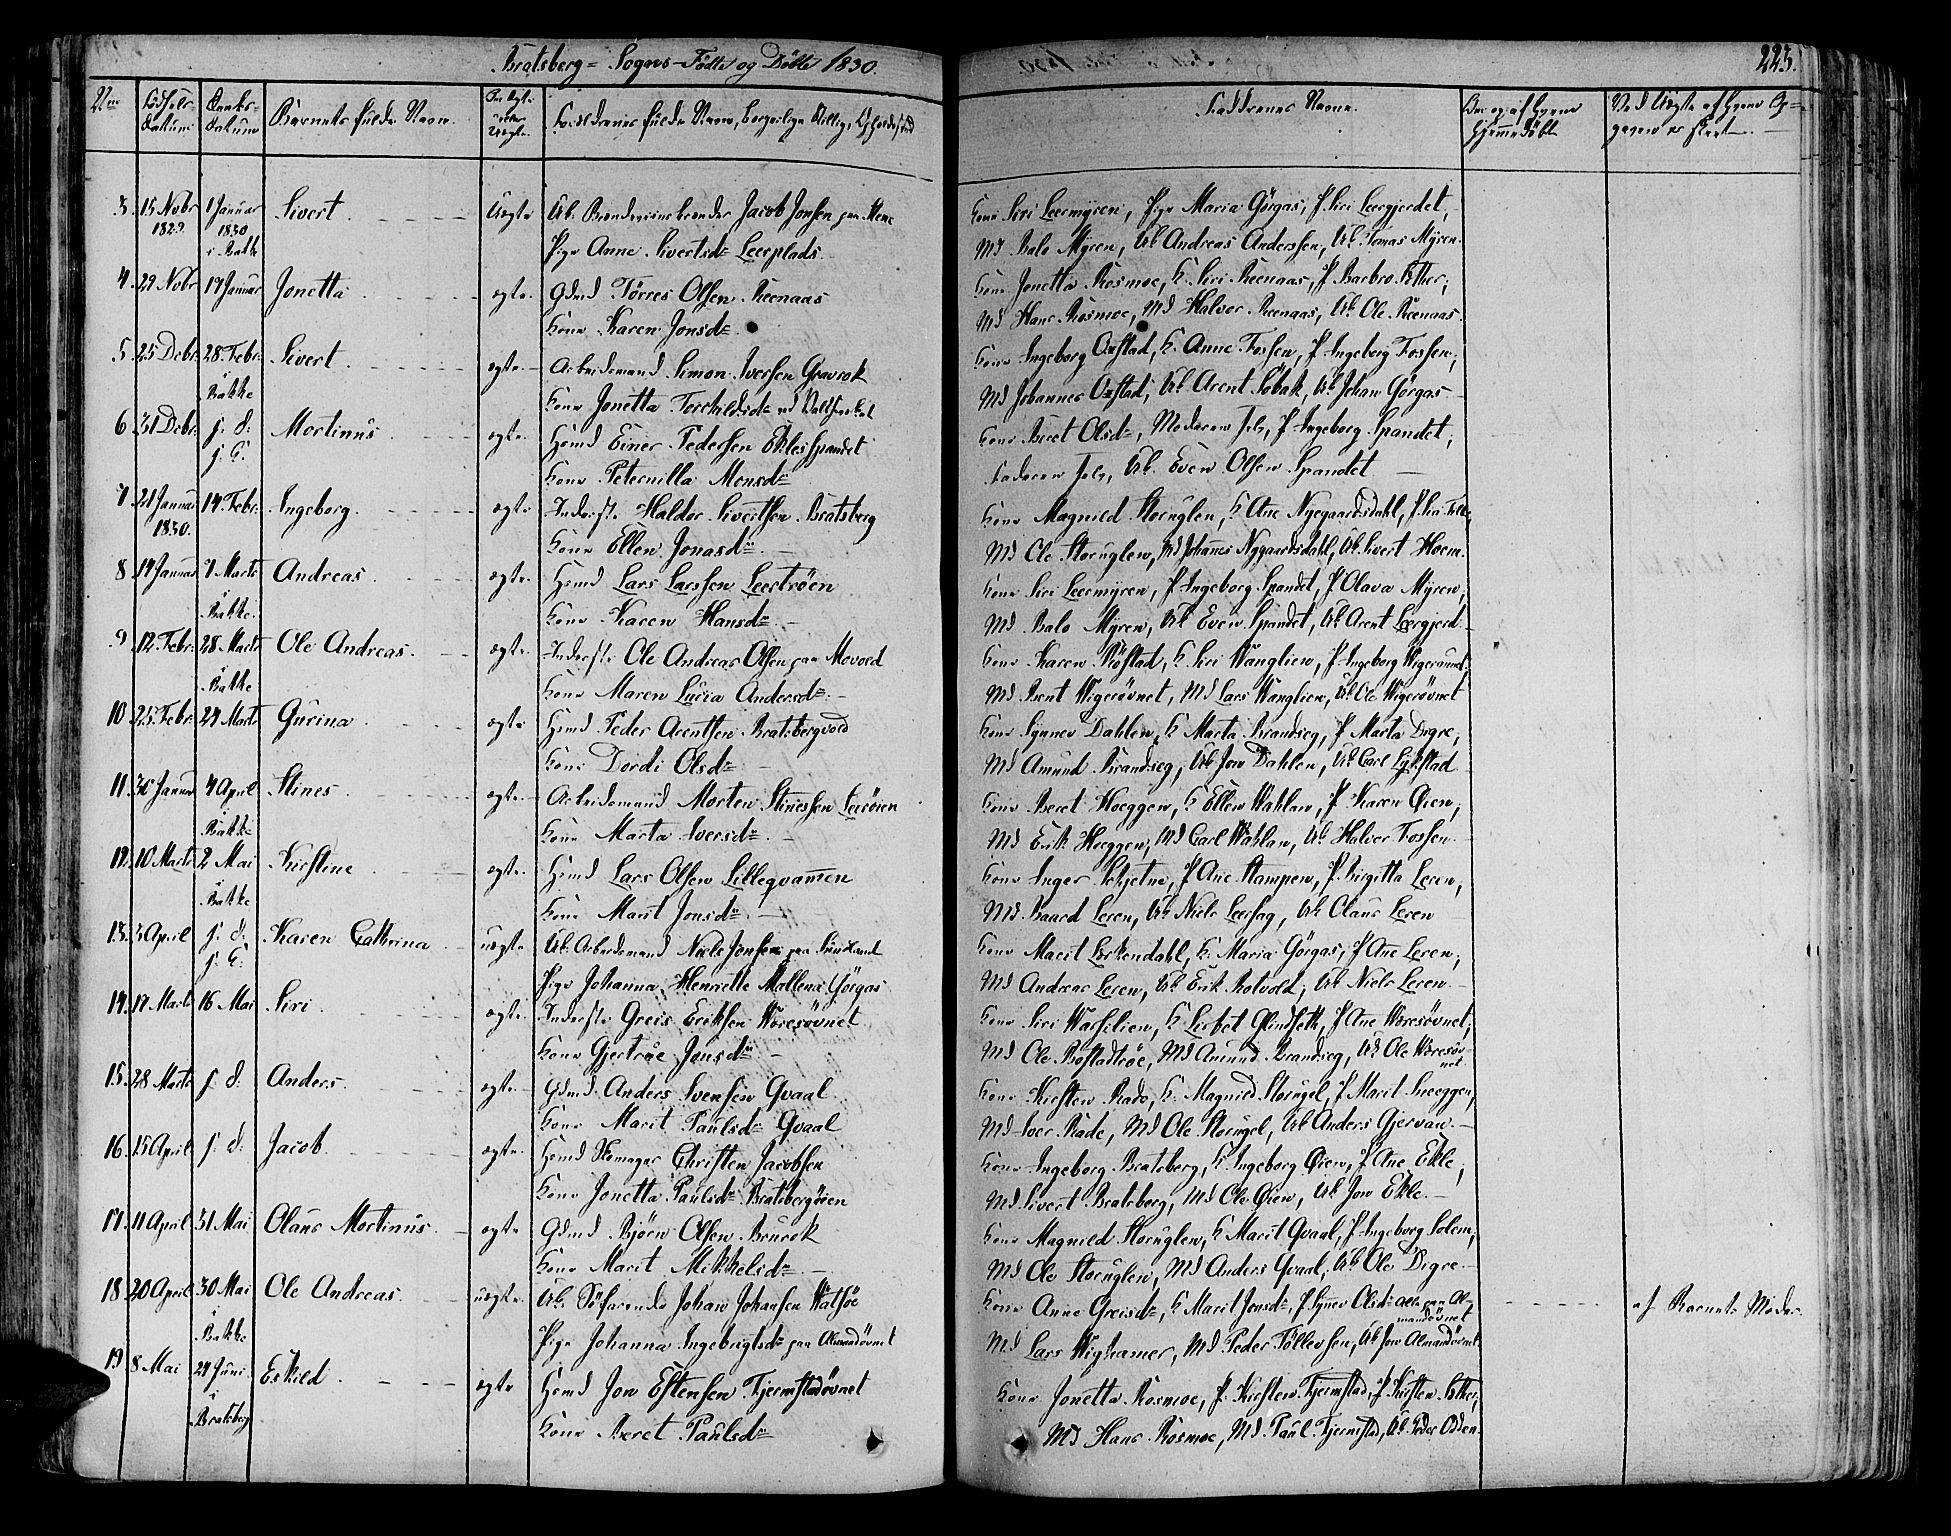 Bratsberg=Sogns-Födte og Döbte 1830.
225.
Fødsels-datum
Daabs-datum
Barnets fulde Navn.
Faddrenes Navne.
3. 15 Nobr 1829 1 Januar 1830 i Bakke Sivert Uægte
Uk. Brændeviinsbrænder Jacob Jonsen paa
Pige Anne Sivertsd. Leerplads
Kone Siri Leermÿren, Pige Maria Görgas, P. Siri Leergjerdet,
Md Balo Mÿren, Uk Andreas Anderssen, Uk Tomas Mÿren.
4. 29 Nobr 17 Januar Jonetta ægte
Gdmd Törres Olsen Reenaas
Kone Karen Jonsd.
Kone Jonetta Rosmoe, K. Siri Reenaas, P Barbro Rither,
Md Hans Rosmoe, Md Halvor Reenaas, Uk Ole Reenaas.
5. 25 Debr. 28. Febr. i Bakke Sivert ægte
Arbeidsmand Simon Iversen Gravrok
Kone Jonetta Torchildsd.
Kone Ingeborg Oxstad, K. Anne Fossen, P Ingeborg Fossen,
Md Johannes Oxstad, Uk Arent Söbak, Uk Johan Görgas
6 31 Debr. s. d. s. K. Mortinus ægte
Hsmd Einer Pedersen Eklesspandet
Kone Peternilla Monsd.
Kone Beret Olsd, Moderen selv, P Ingeborg Spandet,
Faderen selv, Uk. Even Olsen Spandet
7 21 Januar 1830. 14. Febr. Ingeborg ægte
Inderste Haldor Sivertsen Bratsberg
Kone Ellen Jonasd.
Kone Magnild Storuglen, K Ane Nygaardsdahl, P. Siri
Md Ole Storuglen, Md Johannes Nygaardsdahl, Uk Sivert Hoem.
8 14 Januar 7 Marts i Bakke. Andreas ægte
Hsmd Lars Larssen Leertröen
Kone Karen Hansd.
Kone Siri Leermÿren, P Ingeborg Spandet, P Olava Mÿren,
Md. Balo Mÿren, Uk Even Spandet, Uk Arent Leergjerd
9. 12. Febr. 28 Marts i Bakke Ole Andreas ægte
Inderste Ole Andreas Olsen paa Movold
Kone Maren Lucia Andersd.
Kone Karen Röstad, K Siri Wanglien, P Ingeborg Wigeraunet
Md. Brent Wigerövnet, Md Lars Wanglien, Uk Ole Wigerövnet
10 25. Febr 24 Marts Gurina ægte
Hsmd Peder Arentsen Bratsbergvold
Kone Dordi Olsd.
Kone Synnev Dahlen, K Marta Brandseg, P Marta Digre,
Md Amund Brandseg, Uk Jon Dahlen, Uk Carl Lÿkstad
11. 30 Januar 4 April i Bakke Stines ægte
Arbeidsmand Morten Stinessen Leeröien
Kone Marta Iversd.
Kone Beret Hoeggen, K Ellen Wahlan, P Karen Öien,
Md Erik Hoeggen, Md Carl Wahlan, Uk Halvor Fossen
12. 10 Marts 2 Mai i Bakke Kirstine ægte
Hsmd Lars Olsen Lilleqvammen
Kone Marit Jonsd.
Kone Inger Schjetne, P Ane Stampen, P. Birgitta Leren,
Md. Baard Leren, Uk Niels Leersag, Uk Claus Leren
13. 3 April s. d. s. K. Karen Cathrina uægte
Uk. Arbeidsmand Niels Jonsen paa Sundland
Pige Johanna Henriette Mallena Görgas
Kone Marit Lerkendahl, K. Maria Görgas, P Ane Leren,
Md Andreas Leren, Uk Erik Rotvold, Uk Niels Leren
14. 17 Marts 16 Mai Siri ægte
Inderste Greis Eriksen Woresövnet
Kone Gjertrue Jonsd.
Kone Siri Wassilien, K Lisbet Glindseth, P Ane Woresövnet,
Md Ole Bostadtröe, Md Amund Brandseg, Uk Ole Woresöv-
net
15. 28 Marts s. d. Anders ægte
Gdmd Anders Svensen Qvaal
Kone Marit Paulsd. Qvaal
Kone Kirsten Rade, K. Magnild Storugel, P Marit Hoeggen,
Md Iver Rade, Md Ole Storugel, Uk Anders Gjervan.
16. 15 April s. d. Jacob ægte
Hsmd Skomager Christen Jacobsen
Kone Jonetta Paulsd. Bratsbergöien
Kone Ingeborg Bratsberg, K. Ingeborg Öien, P Ane Ekle,
Md Sivert Bratsberg, Md Ole Öien, Uk Jon Ekle
17. 11 April 31 Mai Olaus Mortinus ægte
Gdmd Björn Olsen Brurok
Kone Marit Mikkelsd.
Kone Magnild Storuglen, K Marit Qvaal, P Ingeborg Solem,
Md Ole Storuglen, Md Anders Qvaal, Uk Ole Digre
18 20 April 30 Mai i Bakke Ole Andreas uægte
Uk. Söfarende Johan Johansen Watsöe
Pige Johanna Ingebrigtsd. paa Almandövnet
Kone Anne Greisd., K Marit Jonsd., P. Synev Olsd. alle paa Al-
mandövnet
Md Lars Wighamer, Md Peder Tollevsen, Uk Jon Almandövnet
af Barnets Moder.
19 8 Mai 24 Juni i Bratsberg Eskild ægte
Hsmd Jon Estensen Tjermstadövnet
Kone Beret Paulsd.
Kone Jonetta Rosmoe, P. Kirsten Tjermstad, P Kirsten Rither,
Md Hans Rosmoe, Md Paul Tjermstad, Uk Peder Odsen